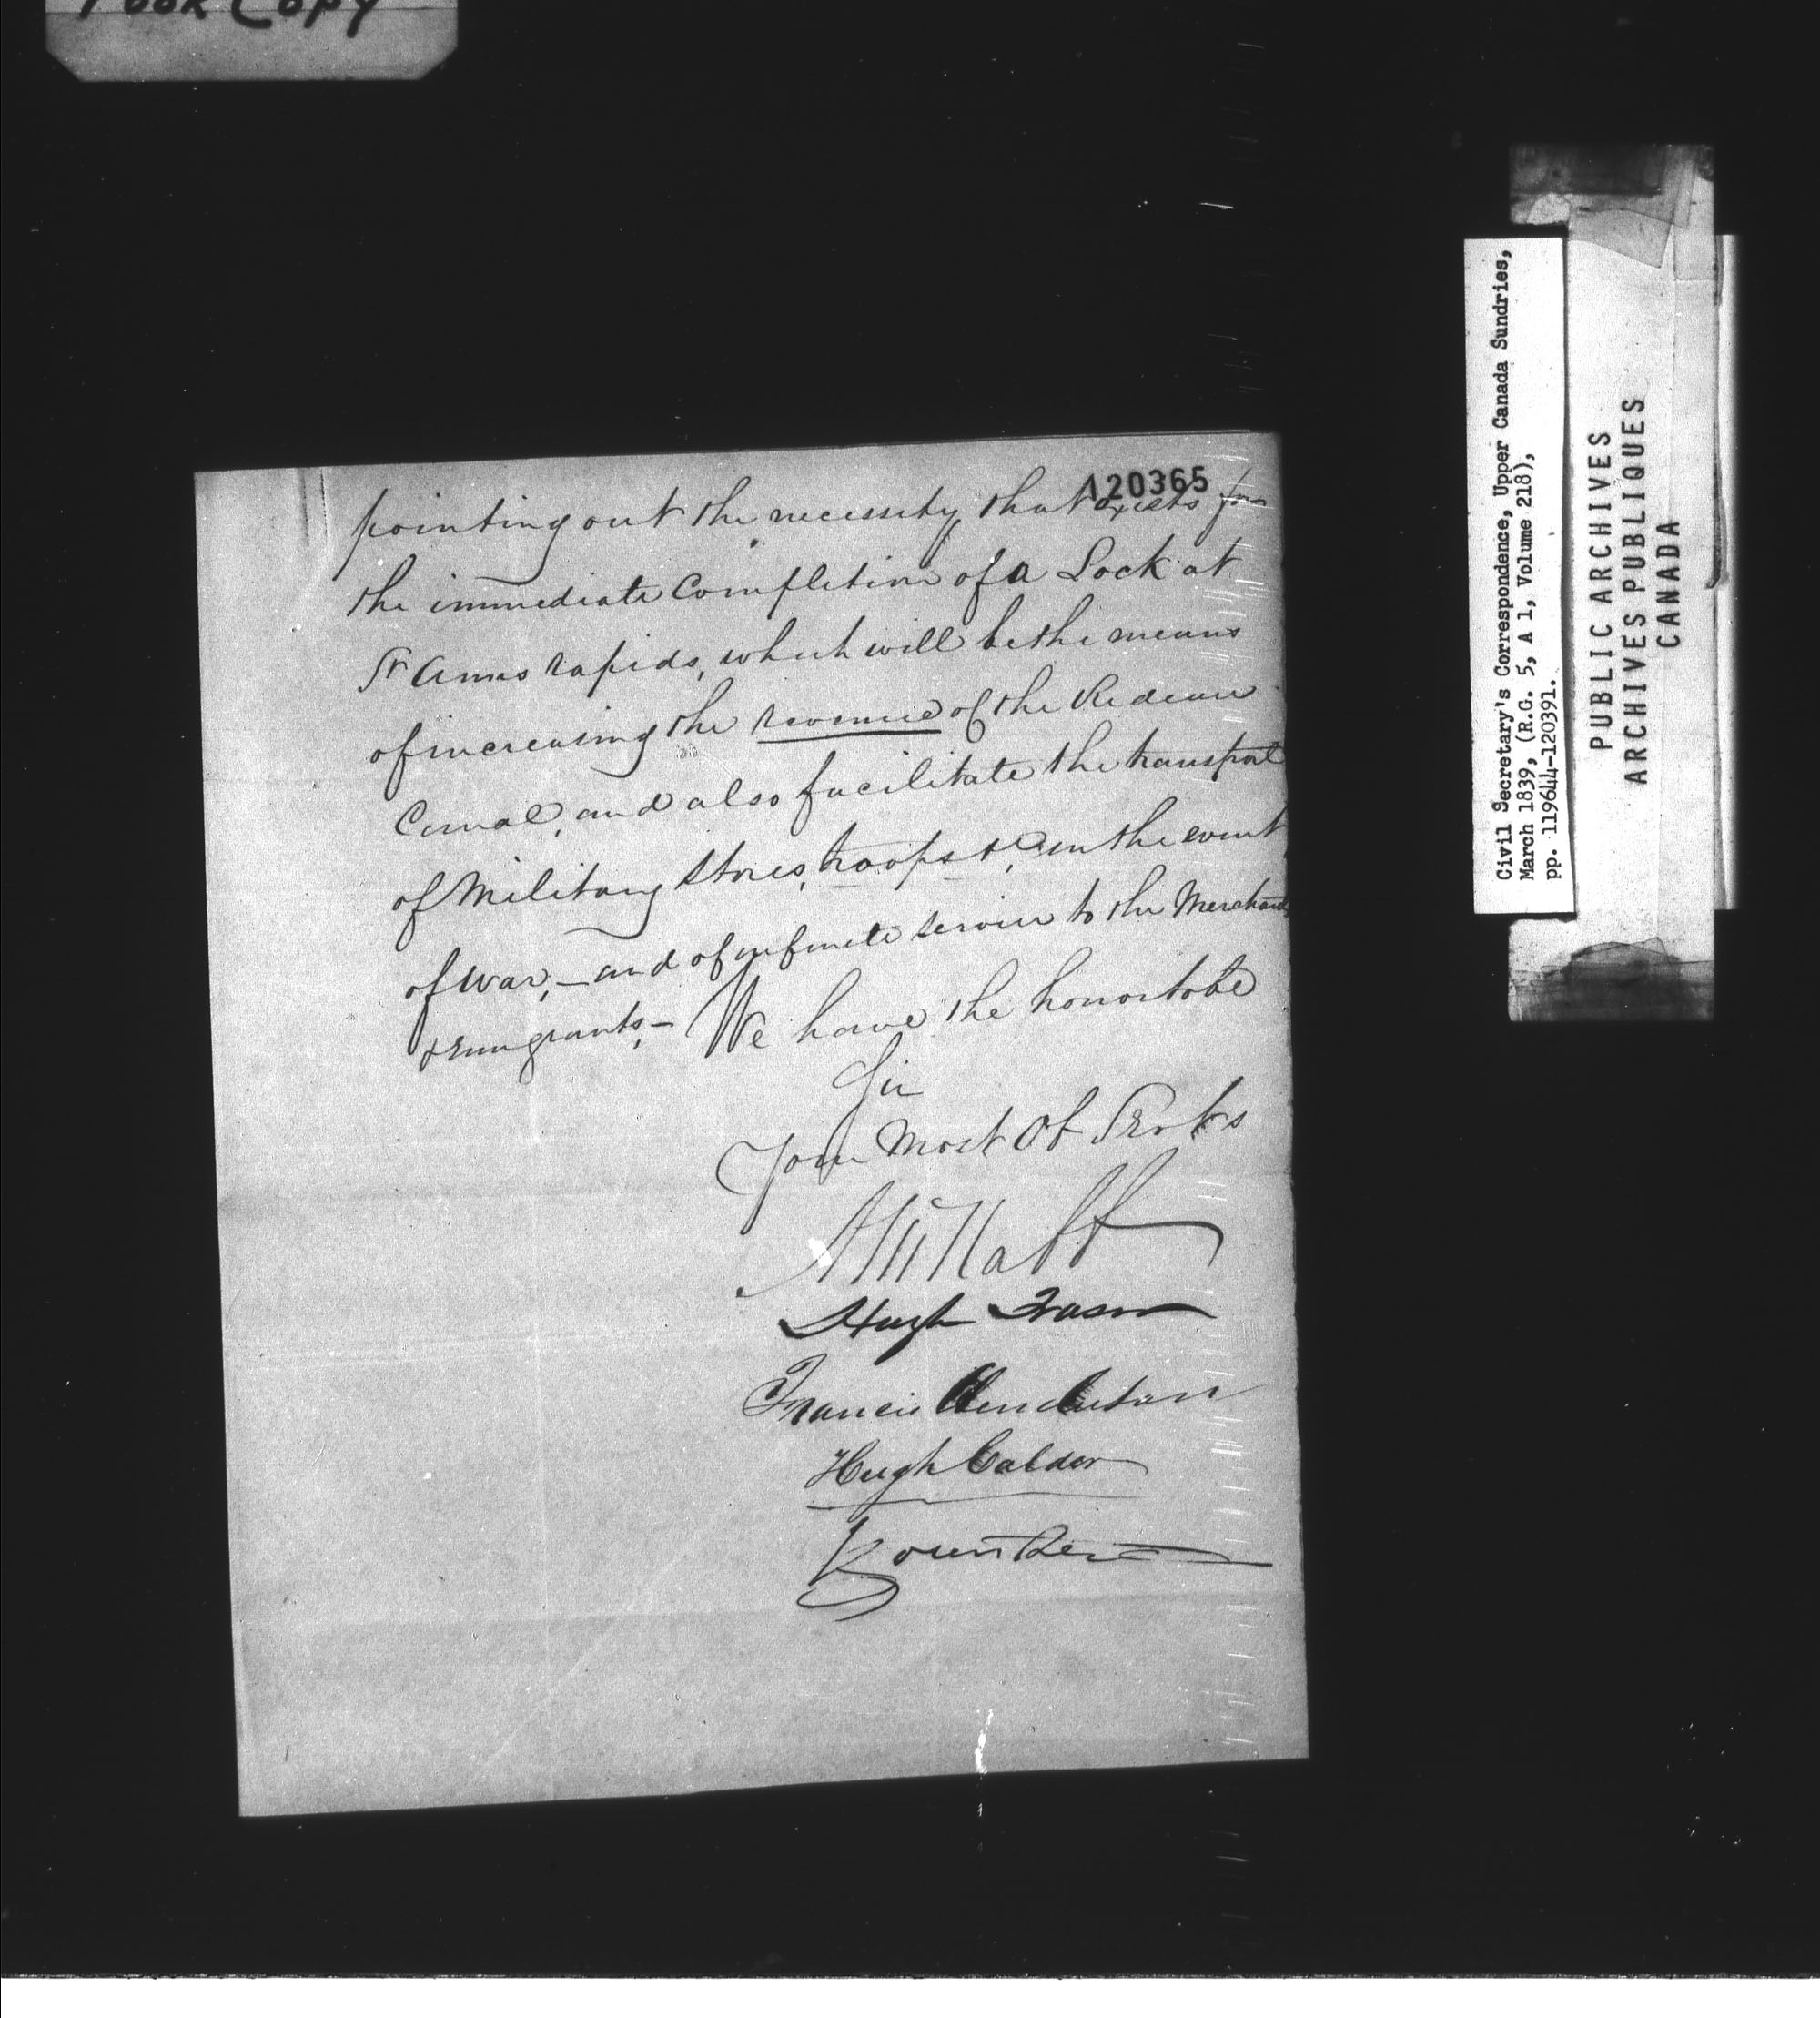 Poor Copy
120365
pointing out the necessity that exists for
the immediate Completion of a Lock at
St Anns rapids, which will be the means
of increasing the revenue of the Rideau
Canal, and also facilitate the transport
of Military Stores, troops &c, in the event
of War, — and of infinite service to the Merchants
& Emigrants, — We have the honor to be
Sir
Your Most Ob Servts
Hugh Fraser
Francis Henderson
Hugh Calder
Civil Secretary's Correspondence, Upper Canada Sundries,
March 1839, (R.G. 5, A 1, Volume 218),
pp. 119644-120391.
PUBLIC ARCHIVES
ARCHIVES PUBLIQUES
CANADA